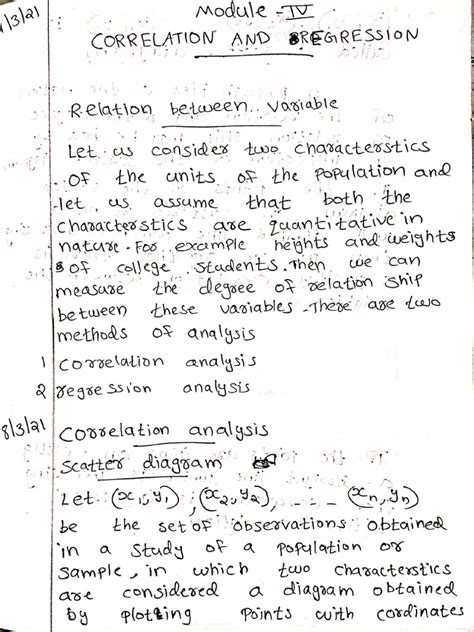 /3/21 Module - IV
CORRELATION AND REGRESSION
Relation between variable
Let us consider two characterstics
of the units of the population and
let us assume that both the
characterstics are quantitative in
nature. For example heights and weights
of college students. Then we can
measure the degree of relation ship
between these variables. There are two
methods of analysis
1 correlation analysis
2 regression analysis
8/3/21 Correlation analysis
Scatter diagram
Let (x1, y1), (x2, y2), ... (xn, yn)
be the set of observations obtained
in a study of a population or
sample, in which two characterstics
are considered a diagram obtained
by plotting points with cordinates